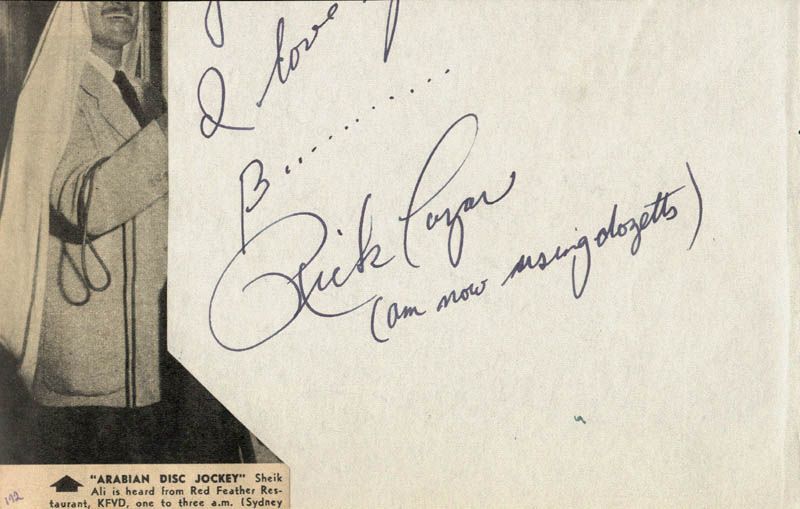 I love
B...........
Rick Lazar
(am now using dozetts)
"ARABIAN DISC JOCKEY" Sheik
Ali is heard from Red Feather Res-
taurant, KFVD, one to three a.m. (Sydney
192